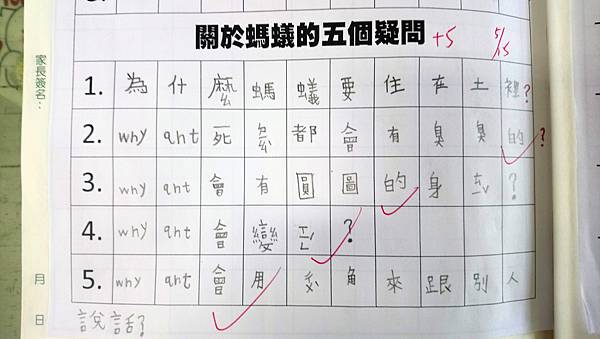 關於螞蟻的五個疑問 +5 5/15
家長簽名：
1. 為什麼螞蟻要住在土裡？
2. why ant 死 都會有臭臭的？
3. why ant 會有圓圓的身 ？
4. why ant 會變 ？
5. why ant 會用 角來跟別人
說話？
月
日